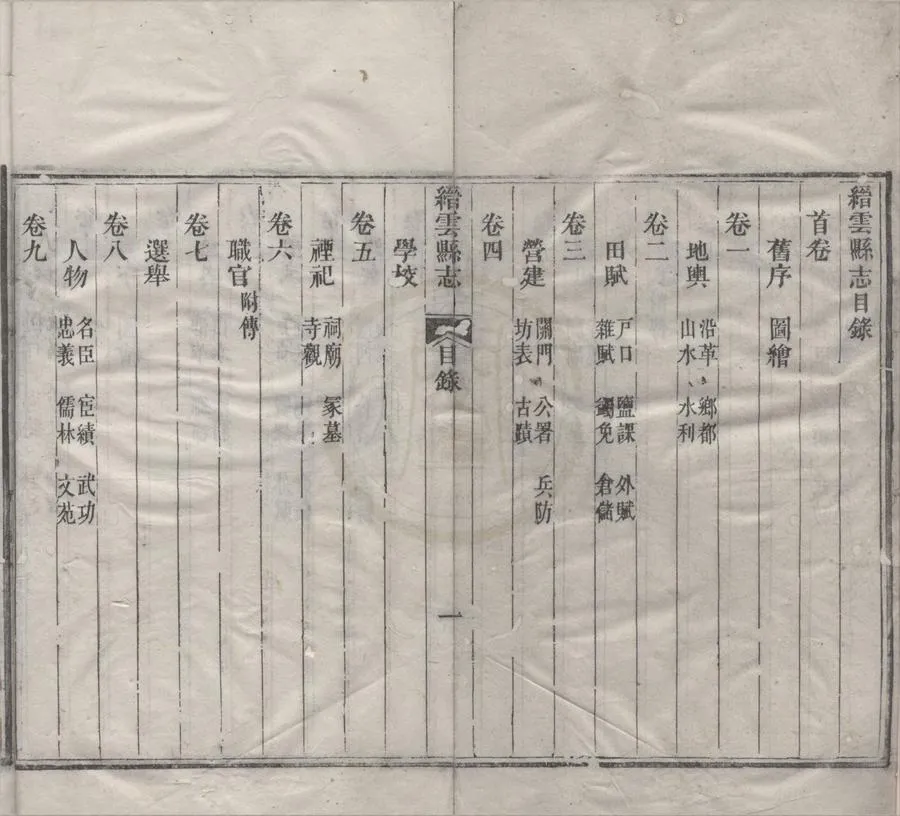 縉雲縣志目錄
首卷
舊序 圖繪
卷一
地輿 沿革 鄉都
山水 水利
卷二
田賦 戶口 鹽課 外賦
雜賦 蠲免 倉儲
卷三
營建 關門 公署 兵防
坊表 古蹟
卷四
縉雲縣志 目錄 一
學校
卷五
禋祀 祠廟 冢墓
寺觀
卷六
職官 附傳
卷七
選舉
卷八
人物 名臣 宦績 武功
忠義 儒林 文苑
卷九